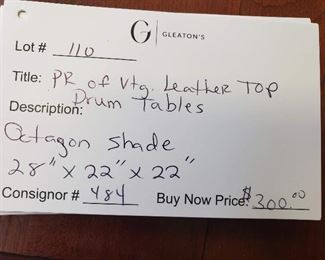 G | GLEATON'S
Lot # 110
Title: PR of Vtg. Leather Top
Drum Tables
Description:
Octagon Shade
28" x 22" x 22"
Consignor # 484 Buy Now Price: $300.00